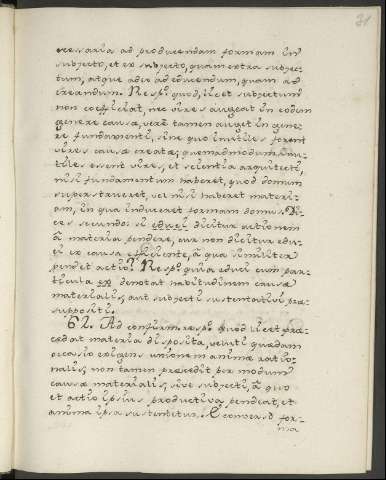 31
cessaria ad producendam formam in
subjecto, et ex subjecto, quam extra subjec-
tum, atque adeo ad educendum, quam ad
creandum. Resp. quod, licet subjectum
non coefficiat, nec vires augeat in eodem
genere causæ, vere tamen auget in gene-
re fundamenti, sine quo inutiles forent
vires causæ creatæ; quemadmodum inu-
tiles essent vires, et scientia arquitecti,
nisi fundamentum haberet, quod domum
superstrueret, vel nisi haberet materi-
am, in qua induceret formam domus. Di-
ces secundo: si educi dicitur actionem
â materia pendere, cur non dicitur edu-
ci ex causa efficiente, â qua similiter
pendet actio? Resp. quia educi cum par-
ticula ex denotat habitudinem causæ
materialis, aut subjecti sustentativi præ-
suppositi.
62. Ad confirm. resp. quod licet præ-
cedat materia disposita, veluti quædam
occasio exigens unionem animæ ratio-
nalis, non tamen præcedit per modum
causæ materialis, sive subjecti, â quo
et actio ipsius productiva pendeat, et
anima ipsa sustentetur. E converso for-
ma